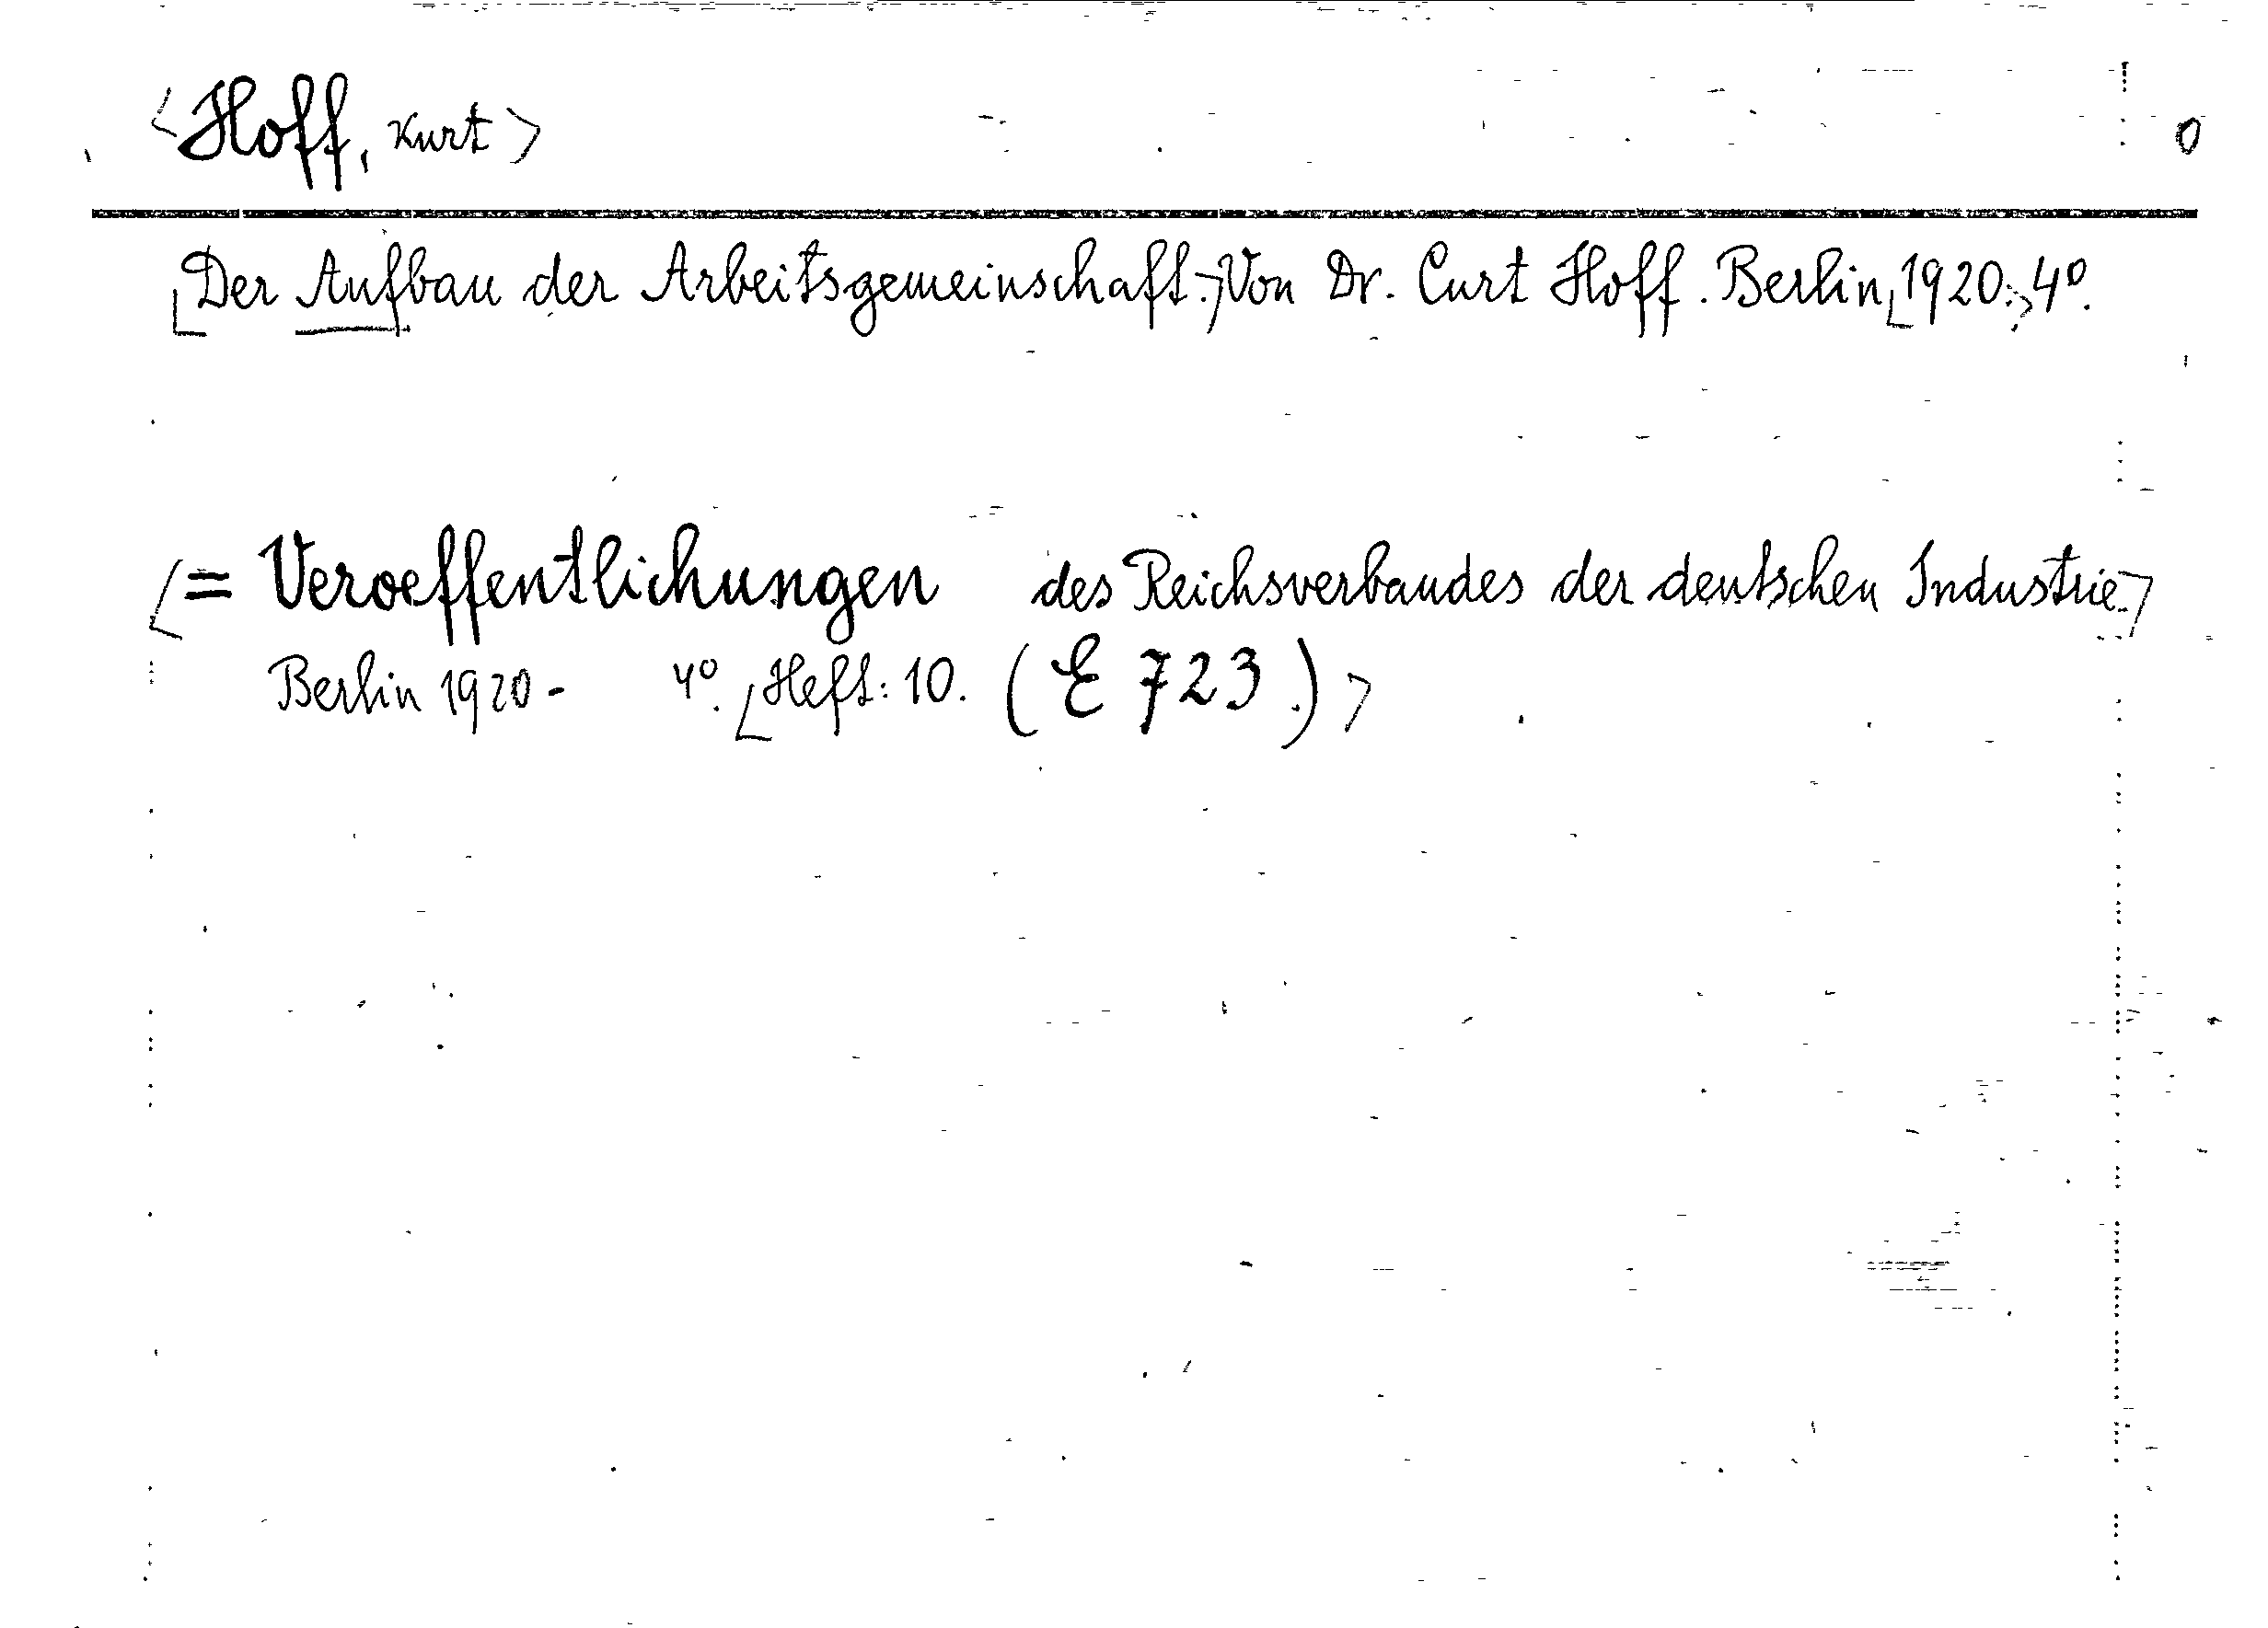 <Hoff, Kurt> 0
[Der Aufbau der Arbeitsgemeinschaft.] Von Dr. Curt Hoff. Berlin [1920.] 4º.
[= Veroeffentlichungen des Reichsverbandes der deutschen Industrie.]
Berlin 1920- 4º. [Heft: 10. (E 723.)]